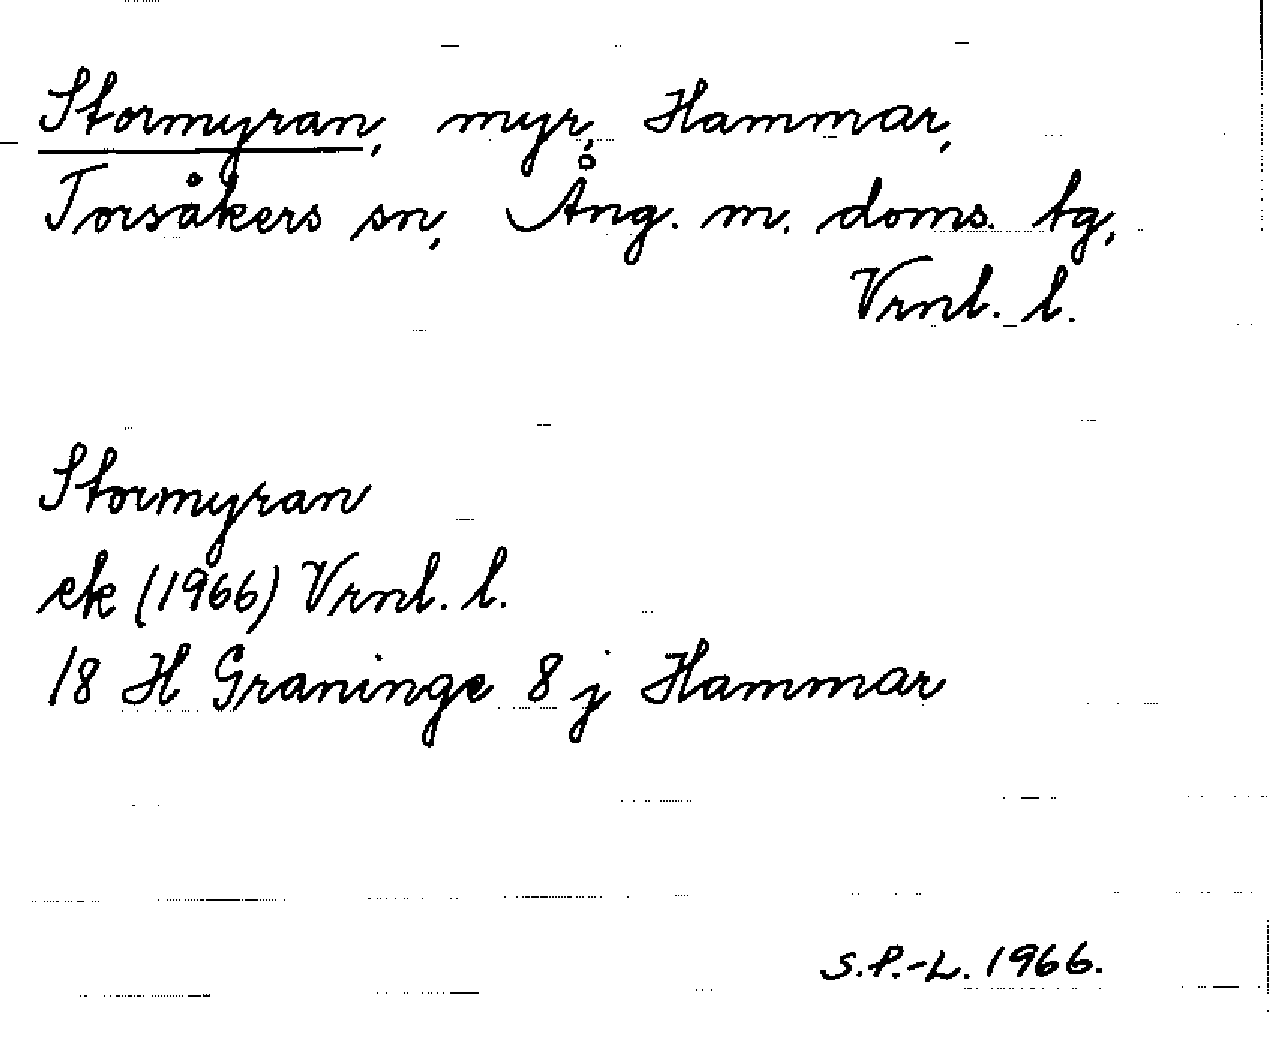 Stormyran, myr, Hammar,
Torsåkers sn, Ång. m. doms. tg,
Vrnl. l.
Stormyran
ek (1966) Vrnl. l.
18 H Graninge 8 j Hammar
S.P.-L. 1966.